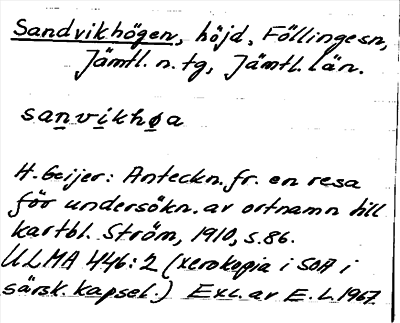 Sandvikhögen, höjd, Föllinge sn,
Jämtl. n. tg, Jämtl. län.
sanvikhøa
H. Geijer: Anteckn. fr. en resa
för undersökn. av ortnamn till
kartbl. Ström, 1910, s. 86.
ULMA 446:2 (xerokopia i SOA i
särsk. kapsel.) Exc. av E. L. 1967